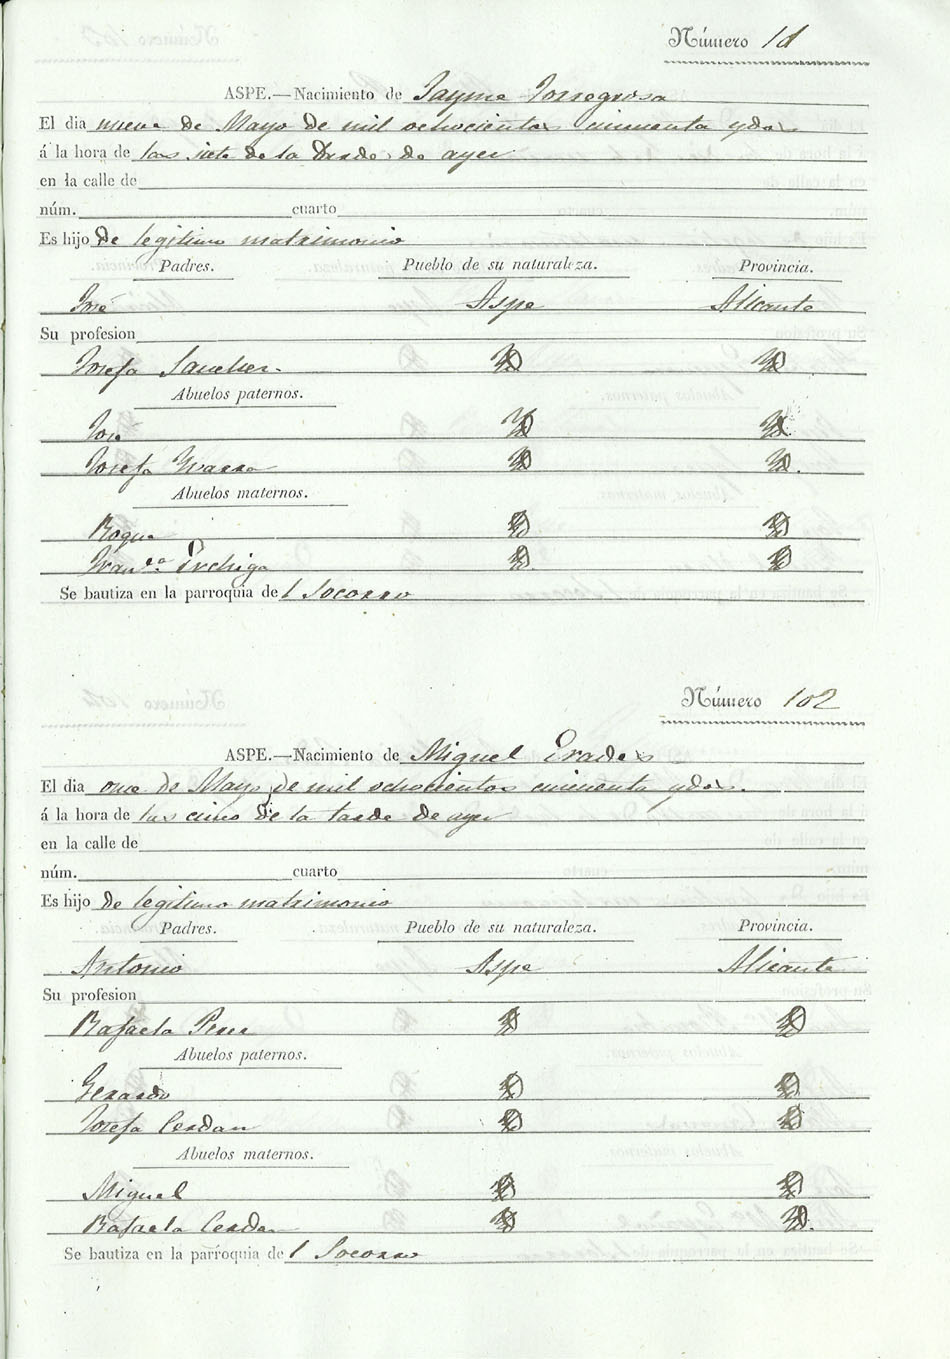 Número 1d
ASPE.—Nacimiento de Jayme Torregrosa
El dia nueve de Mayo de mil ochocientos cincuenta y dos
á la hora de las siete de la tarde de ayer
en la calle de
núm. cuarto
Es hijo de legitimo matrimonio
Padres. Pueblo de su naturaleza. Provincia.
José Aspe Alicante
Su profesion
Josefa Sanchez Yd Yd
Abuelos paternos.
José Yd Yd
Josefa Yd Yd.
Abuelos maternos.
Roque Yd Yd
Yd Yd
Se bautiza en la parroquia del Socorro
Número 102
ASPE.—Nacimiento de Miguel Erades
El dia once de Mayo de mil ochocientos cincuenta y dos.
á la hora de las cinco de la tarde de ayer
en la calle de
núm. cuarto
Es hijo de legitimo matrimonio
Padres. Pueblo de su naturaleza. Provincia.
Antonio Aspe Alicante
Su profesion
Rafaela Perez Yd Yd
Abuelos paternos.
Gerardo Yd Yd
Josefa Cerdan Yd Yd
Abuelos maternos.
Miguel Yd Yd
Rafaela Cerdan Yd Yd.
Se bautiza en la parroquia del Socorro